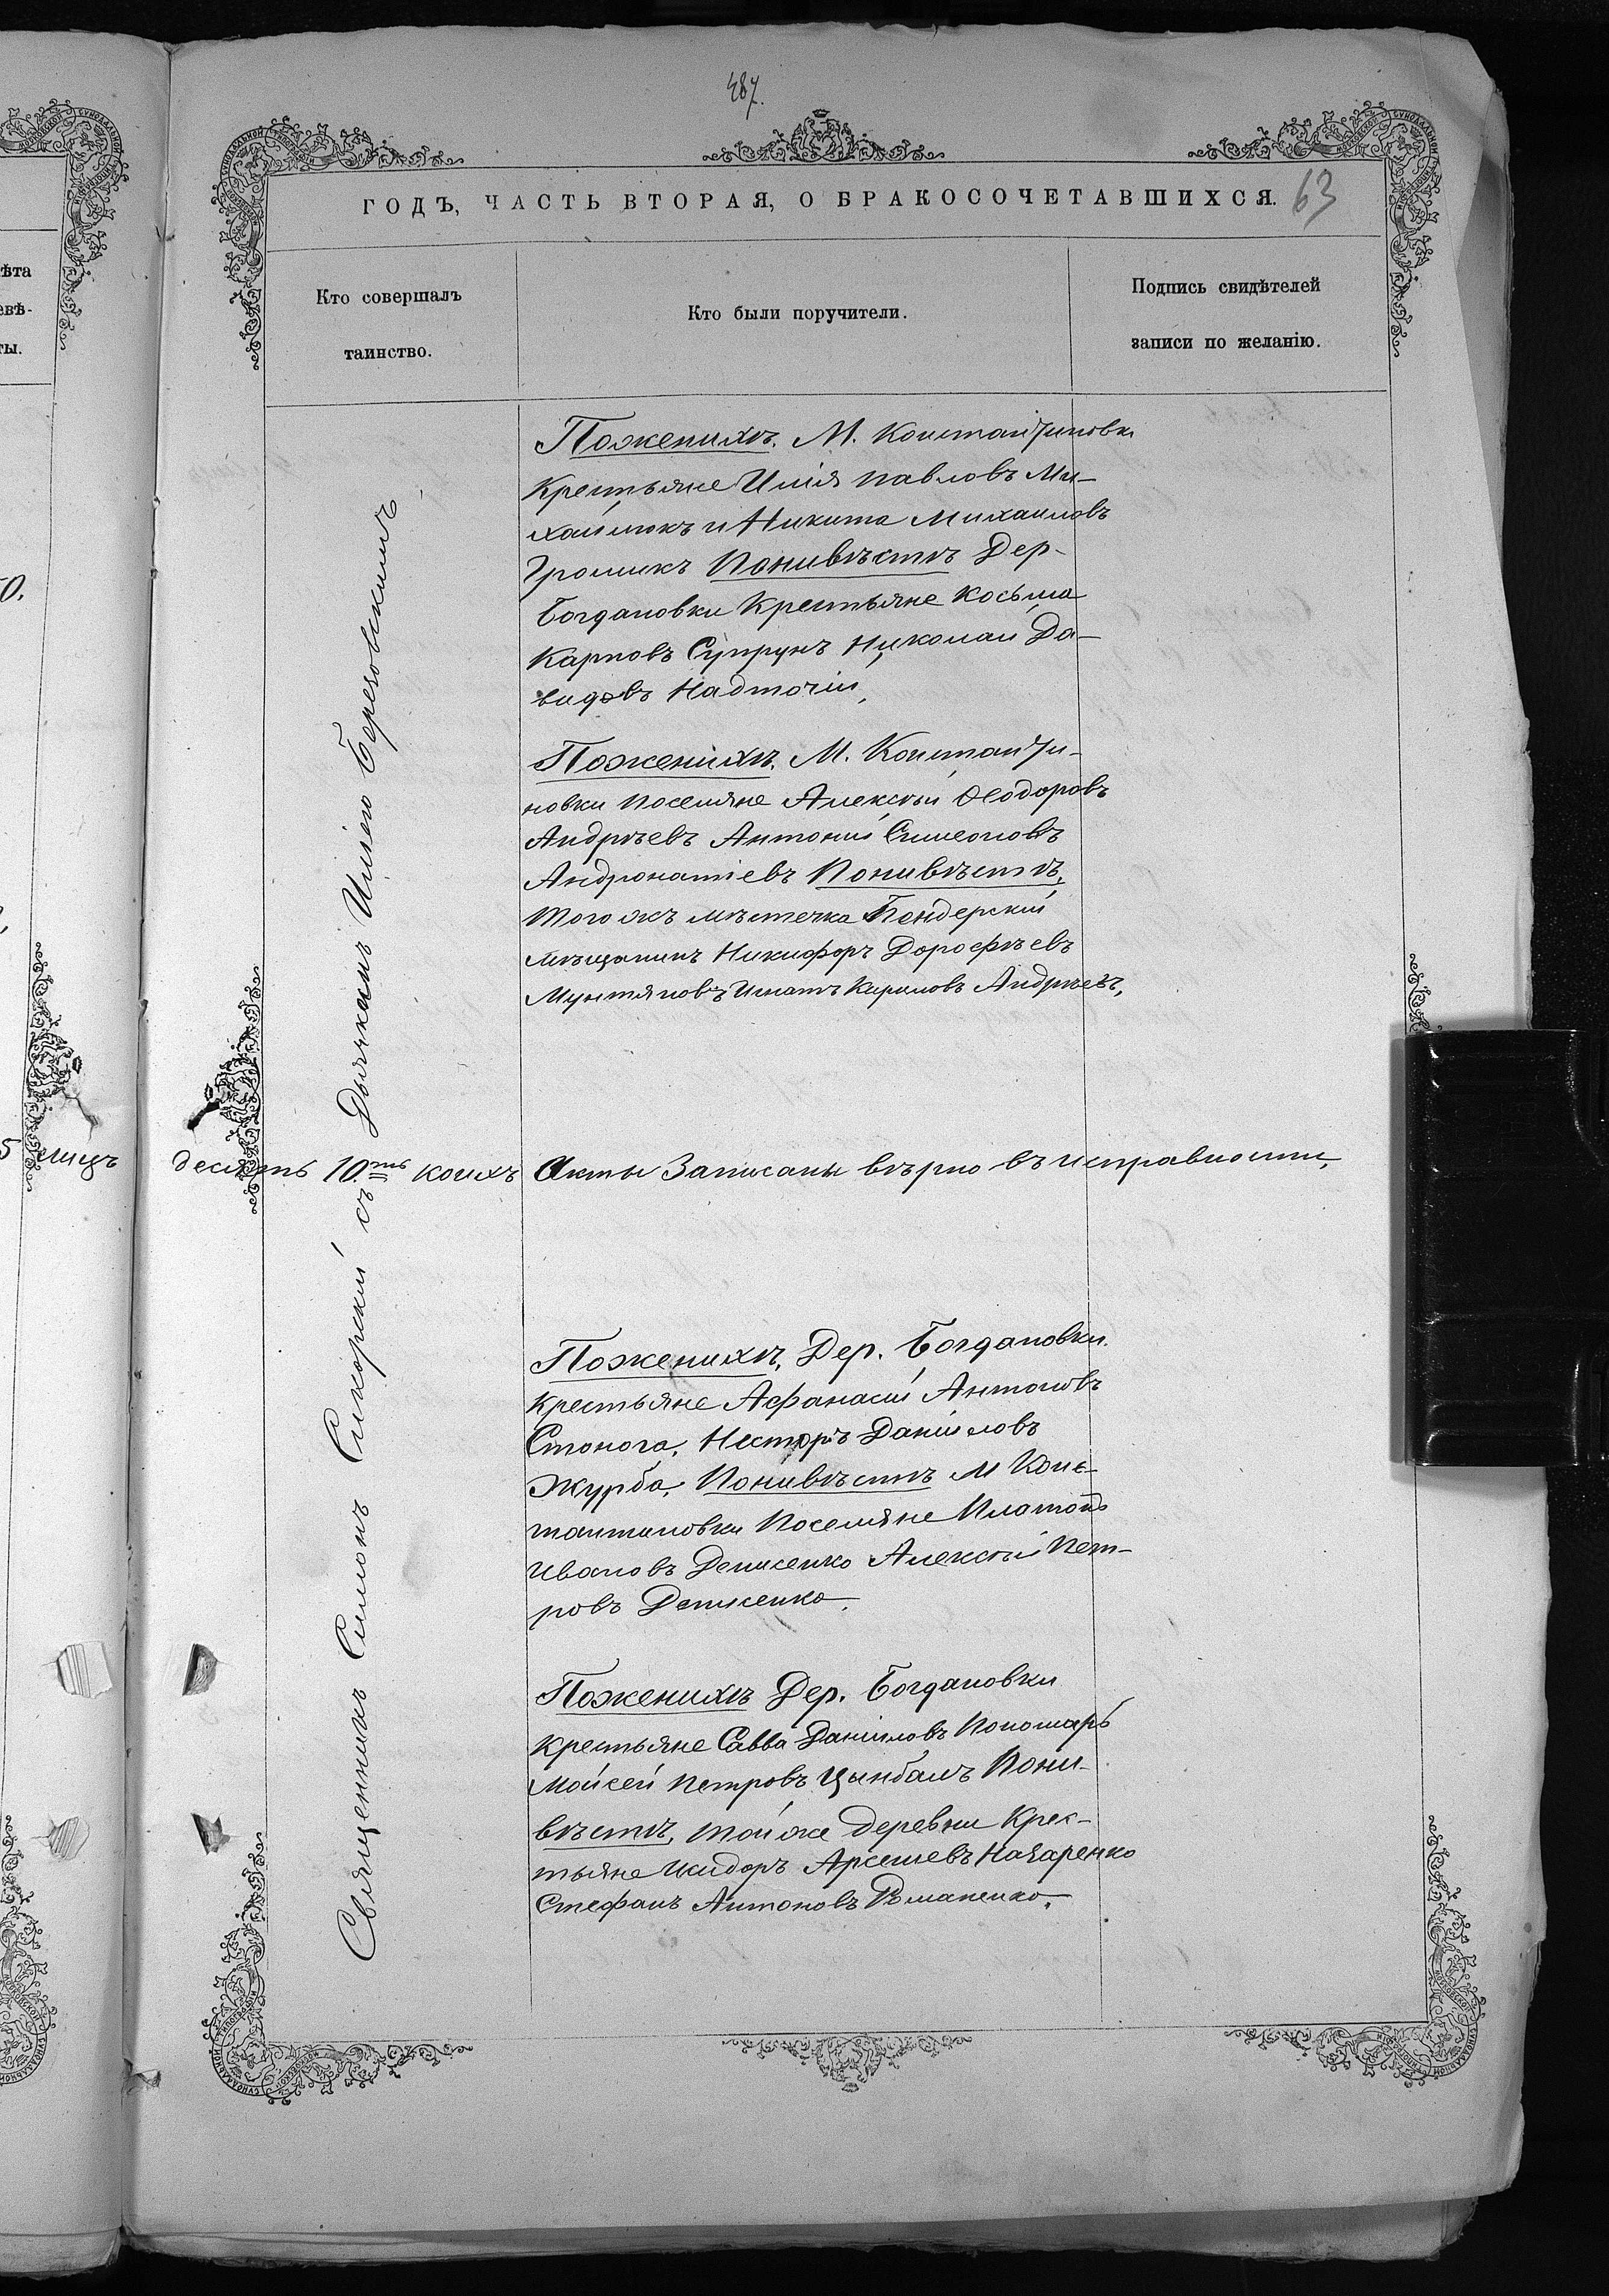 487.
ГОДЪ, ЧАСТЬ ВТОРАЯ, О БРАКОСОЧЕТАВШИХСЯ. 63
ѣта
евѣ-
ты.
Кто совершалъ
таинство.
Кто были поручители.
Подпись свидѣтелей
записи по желанію.
Священникъ Симонъ Сикорскій съ Дьячкомъ Иліею Березовскимъ
Поженихѣ. М. Константиновки
Крестьяне Илія Павловъ Ми-
хайлюкъ и Никита Михаиловъ
Громикъ Поневѣстѣ Дер-
Богдановки Крестьяне Косьма
Карповъ Супрунъ Николай Да-
видовъ Надточій,
Поженихѣ. М. Константи-
новки поселяне Алексѣй Ѳеодоровъ
Андрѣевъ Антоній Симеоновъ
Андронатіевъ Поневѣстѣ,
того жъ мѣстечка Бендерскій
мѣщанинъ Никифоръ Дорофѣевъ
Мунтяновъ Игнатъ Кириловъ Андрѣевъ,
5 лицъ десять 10.ть коихъ Акты Записаны вѣрно въ исправности,
Поженихѣ, Дер. Богдановки.
крестьяне Афанасій Антоновъ
Стонога, Несторъ Даніиловъ
Журба, Поневѣстѣ М Конс-
тантиновки Поселяне Платонъ
Ивановъ Денисенко Алексѣй Пет-
ровъ Денисенко.
Поженихѣ Дер. Богдановки
крестьяне Савва Даніиловъ Пономарь
Мойсей Петровъ Цымбалъ Поне-
вѣстѣ, той же деревни Крес-
тьяне Исидоръ Арсеніевъ Назаренко
Стефанъ Антоновъ Романенко.